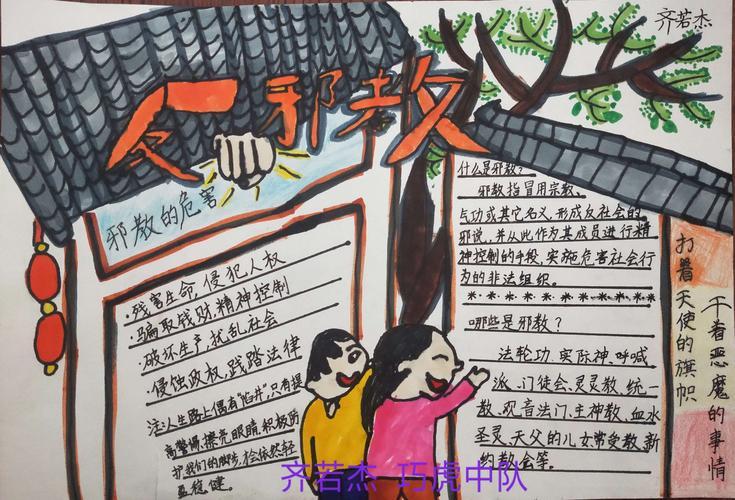 齐若杰
反邪教
邪教的危害
·残害生命,侵犯人权
·骗取钱财,精神控制
·破坏生产,扰乱社会
·侵蚀政权,践踏法律
注:人生路上偶有"陷井",只有提
高警惕,擦亮眼睛,积极防
护我们的脚步,才会依然轻
盈、稳健。
什么是邪教?
邪教指冒用宗教、
气功或其它名义,形成反社会的
邪说,并从此作为其成员进行精
神控制的手段,实施危害社会行
为的非法组织。
哪些是邪教?
法轮功、实际神、呼喊
派、门徒会、灵灵教、统一
教、观音法门、主神教、血水
圣灵、天父的儿女常受教、新
约教会等。
打着天使的旗帜
干着恶魔的事情
齐若杰 巧虎中队